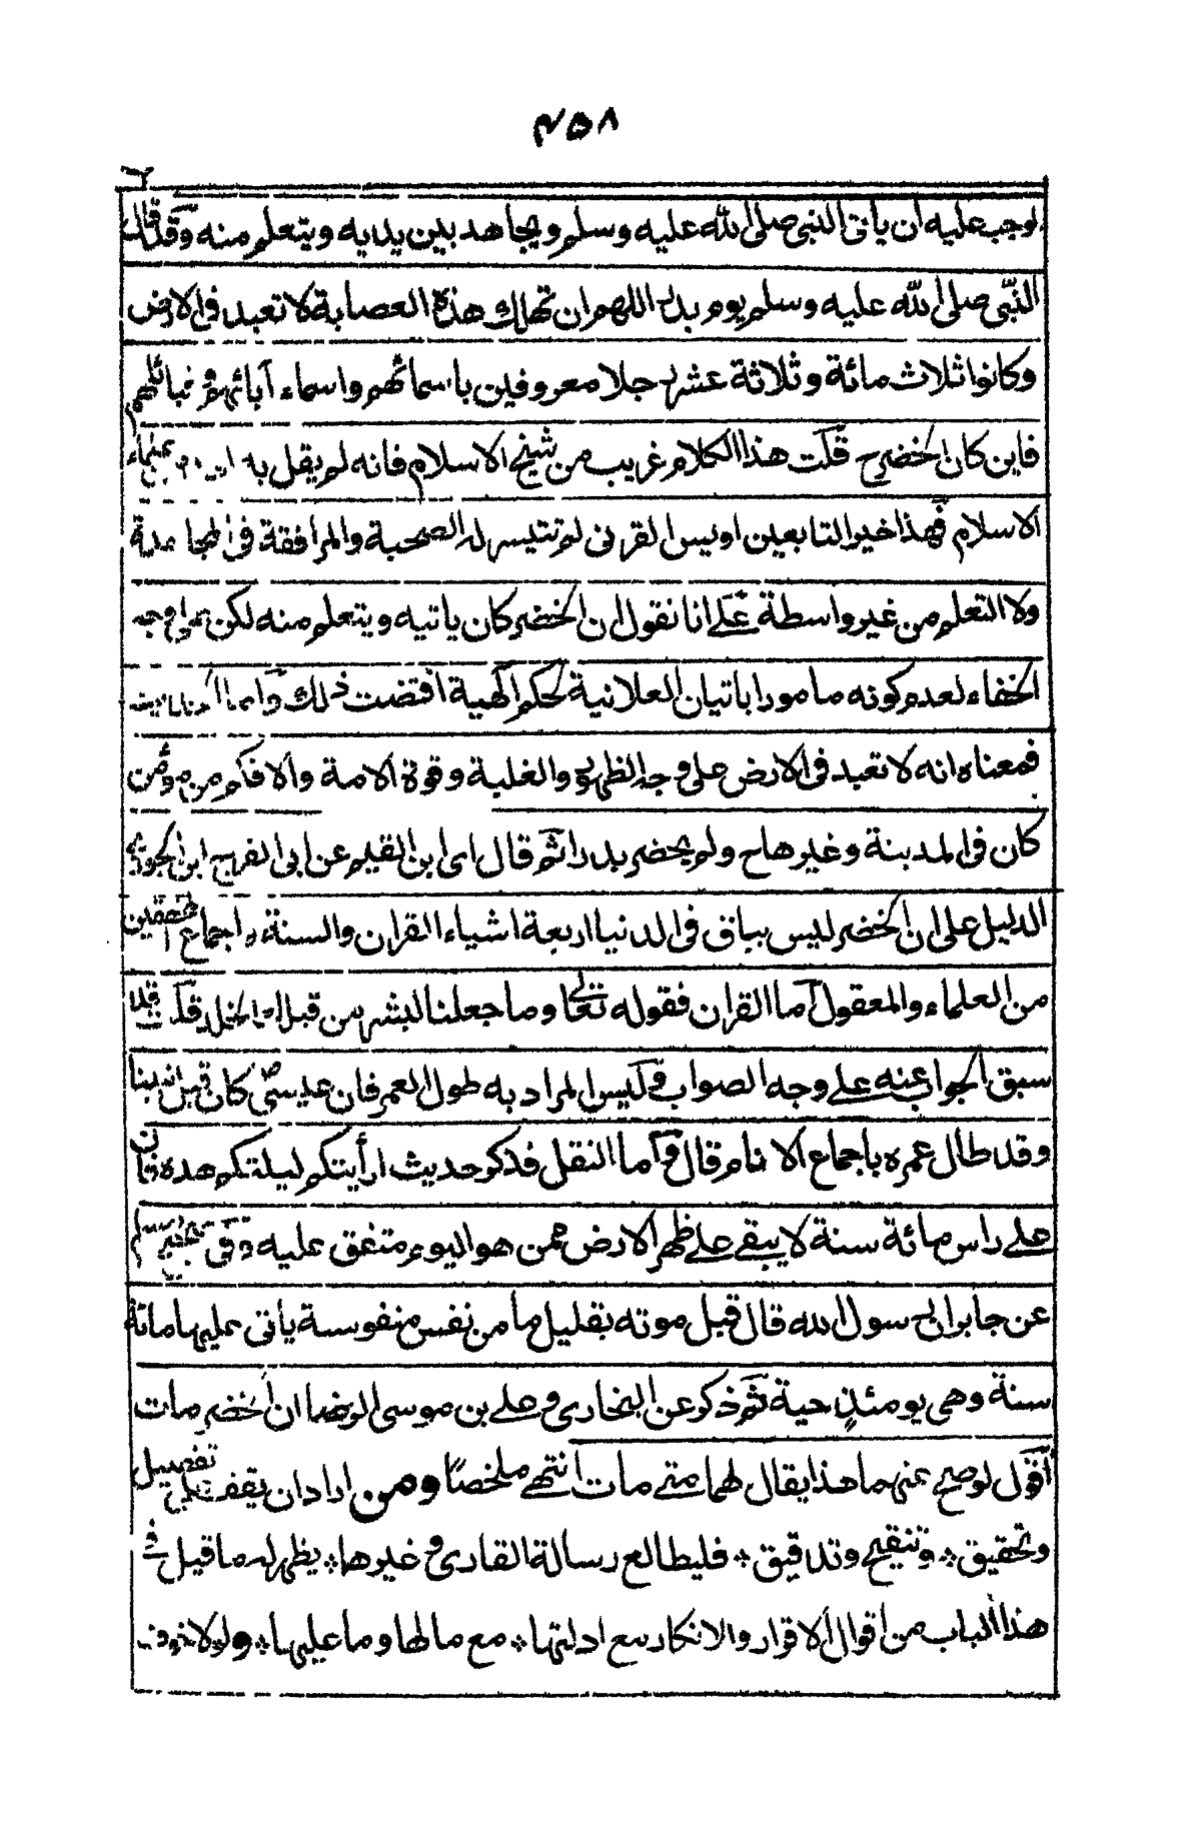 ۴۵۸
لوجب عليه ان يأتى النبى صلى الله عليه وسلم ويجاهد بين يديه ويتعلم منه وقد قال
النبى صلى الله عليه وسلم يوم بدر اللهم ان تهلك هذه العصابة لا تعبد فى الارض
وكانوا ثلاث مائة وثلاثة عشر رجلا معروفين باسمائهم واسماء آبائهم وقبائلهم
فاين كان الخضر ح قلت هذا الكلام غريب من شيخ الاسلام فانه لم يقل به علماء
الاسلام فهذا خير التابعين اويس القرنى لم تتيسر له الصحبة والمرافقة فى المجاهدة
ولا التعلم من غير واسطة على انا نقول ان الخضر كان ياتيه ويتعلم منه لكن على وجه
الخفاء لعدم كونه مامورا باتيان العلانية لحكم آلهية اقتضت ذلك واما الحديث
فمعناه انه لا تعبد فى الارض على وجه الظهور والغلبة وقوة الامة والا فكم من مؤمن
كان فى المدينة وغيرها ح ولم يحضر بدرا ثم قال اى ابن القيم عن ابى الفرج ابن الجوزى
الدليل على ان الخضر ليس بباق فى الدنيا اربعة اشياء القران والسنة و اجماع المحققين
من العلماء والمعقول آما القران فقوله تعالى وما جعلنا لبشر من قبلك الخلد قلت قد
سبق الجواب عنه على وجه الصواب وليس المراد به طول العمر فان عيسى كان قبل نبينا
وقد طال عمره باجماع الانام قال وآما النقل فذكر حديث ارأيتكم ليلتكم هذه فان
على راس مائة سنة لا يبقى على ظهر الارض ممن هو اليوم متفق عليه وفى صحيح مسلم
عن جابر ان رسول الله قال قبل موته بقليل ما من نفس منفوسة يأتى عليها مائة
سنة وهى يومئذ حية ثم ذكر عن البخارى وعلى بن موسى الرضا ان الخضر مات
آقول لو صح عنهما هذا يقال لهما متى مات انتهى ملخصًا ومن اراد ان يقف على تفصيل
وتحقيق * وتنقيح وتدقيق * فليطالع رسالة القارى وغيرها * يظهر له ما قيل فى
هذا الباب من اقوال الاقرار والانكار مع ادلتها * مع ما لها وما عليها * ولولا خوف